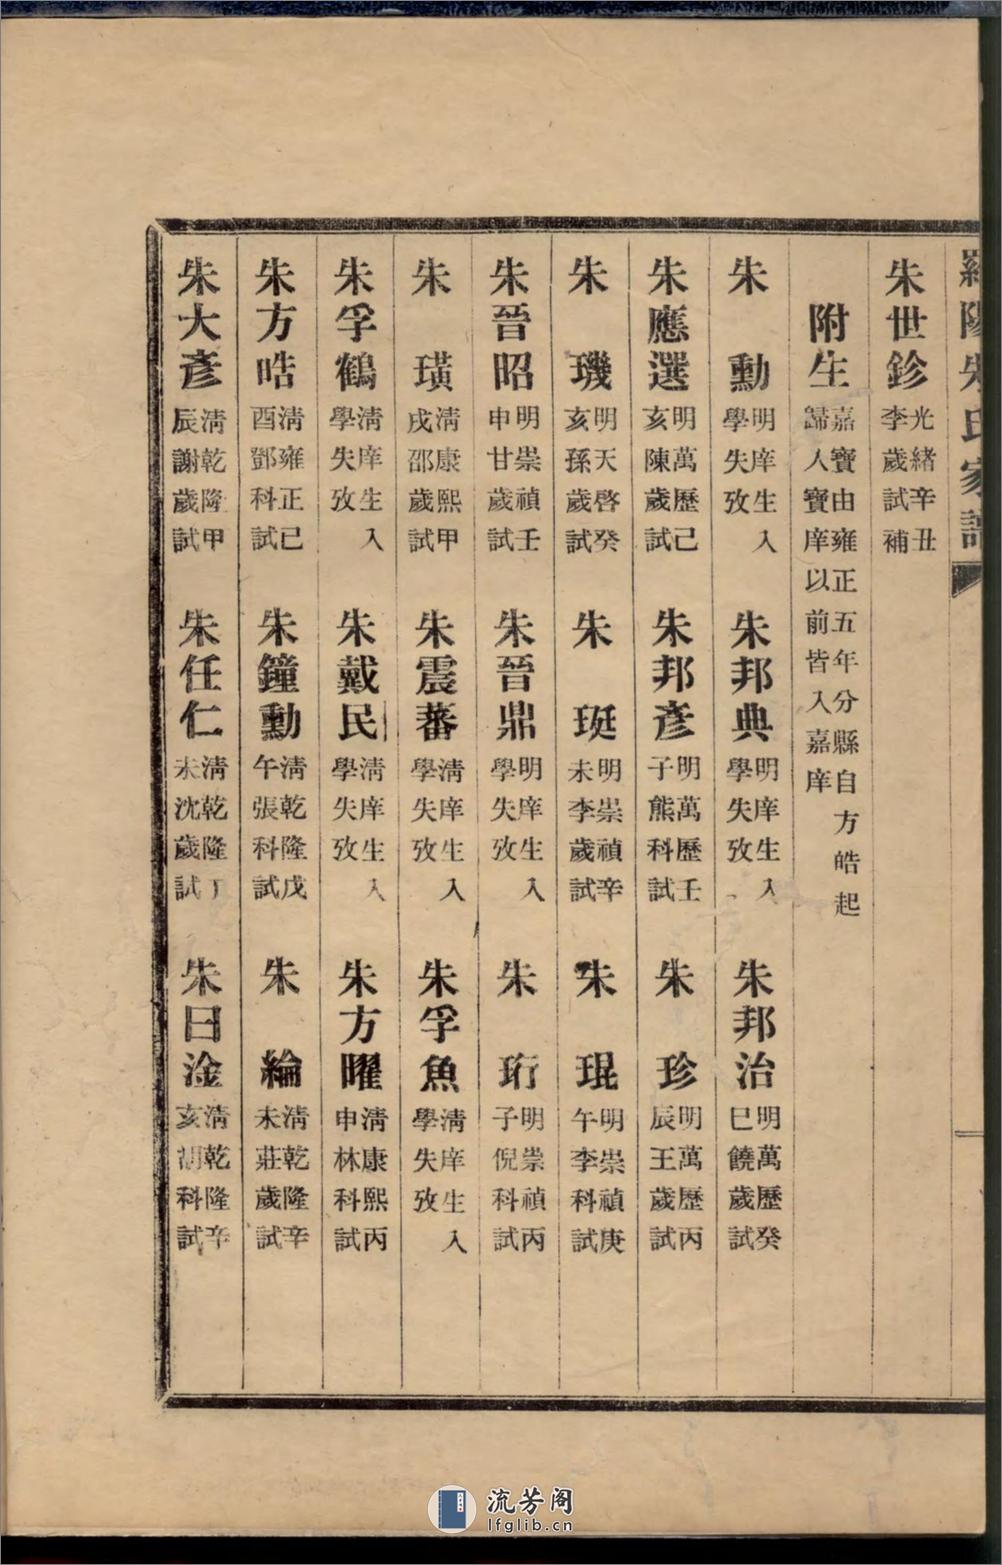 羅陽朱氏家譜
朱世鉁 光緒辛丑李歲試補
附生 嘉寶由雍正五年分縣自方皓起歸人寶庠以前皆入嘉庠
朱勳 明庠生入學失攷 朱邦典 明庠生入學失攷 朱邦治 明萬歷癸巳饒歲試
朱應選 明萬歷己亥陳歲試 朱邦彥 明萬歷壬子熊科試 朱珍 明萬歷丙辰王歲試
朱璣 明天啓癸亥孫歲試 朱珽 明崇禎辛未李歲試 朱琨 明崇禎庚午李科試
朱晉昭 明崇禎壬申甘歲試 朱晉鼎 明庠生入學失攷 朱珩 明崇禎丙子倪科試
朱璜 清康熙甲戌邵歲試 朱震蕃 清庠生入學失攷 朱孚魚 清庠生入學失攷
朱孚鶴 清庠生入學失攷 朱戴民 清庠生入學失攷 朱方曜 清康熙丙申林科試
朱方晧 清雍正己酉鄧科試 朱鐘勳 清乾隆戊午張科試 朱綸 清乾隆辛未莊歲試
朱大彥 清乾隆甲辰謝歲試 朱任仁 清乾隆丁未沈歲試 朱日淦 清乾隆辛亥胡科試
流芳阁
lfglib.cn